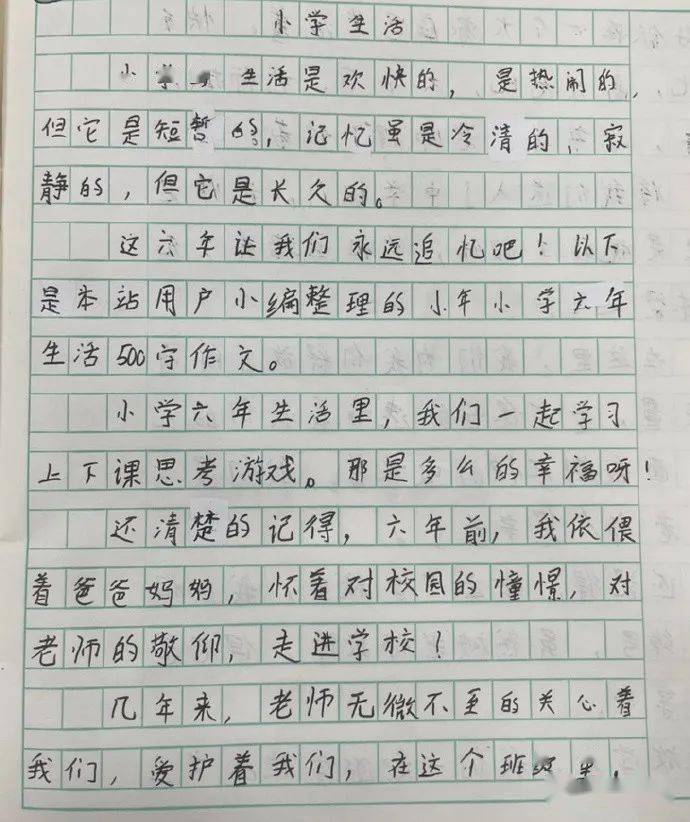 小学生活
小学 生活是欢快的，是热闹的，
但它是短暂的，记忆虽是冷清的，寂
静的，但它是长久的。
这六年让我们永远追忆吧！以下
是本站用户小编整理的小年小学六年
生活500字作文。
小学六年生活里，我们一起学习
上下课思考游戏。那是多么的幸福呀！
还清楚的记得，六年前，我依偎
着爸爸妈妈，怀着对校园的憧憬，对
老师的敬仰，走进学校！
几年来，老师无微不至的关心着
我们，爱护着我们，在这个班